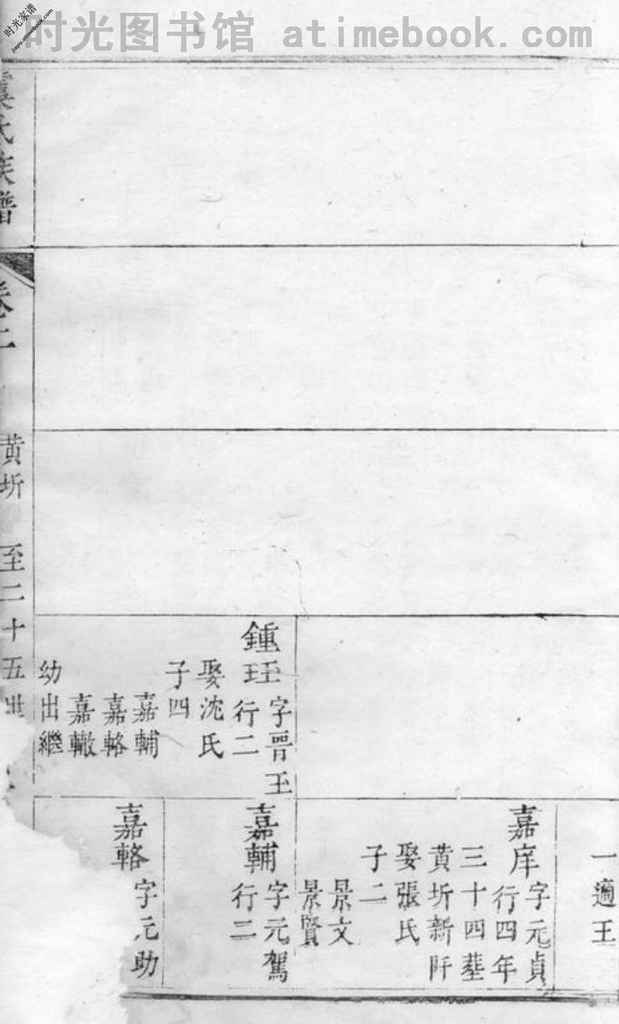 时光图书馆 atimebook.com
时光家谱
鍾珏
字晋王
行二
娶沈氏
子四
嘉輔
嘉輅
嘉轍
幼出繼
一適王
嘉庠
字元貞
行四年
三十四塟
黄圻新阡
娶張氏
子二
景文
景賢
嘉輔
字元駕
行二
嘉輅
字元助
氏族譜
卷二
黄圻
至二十五世